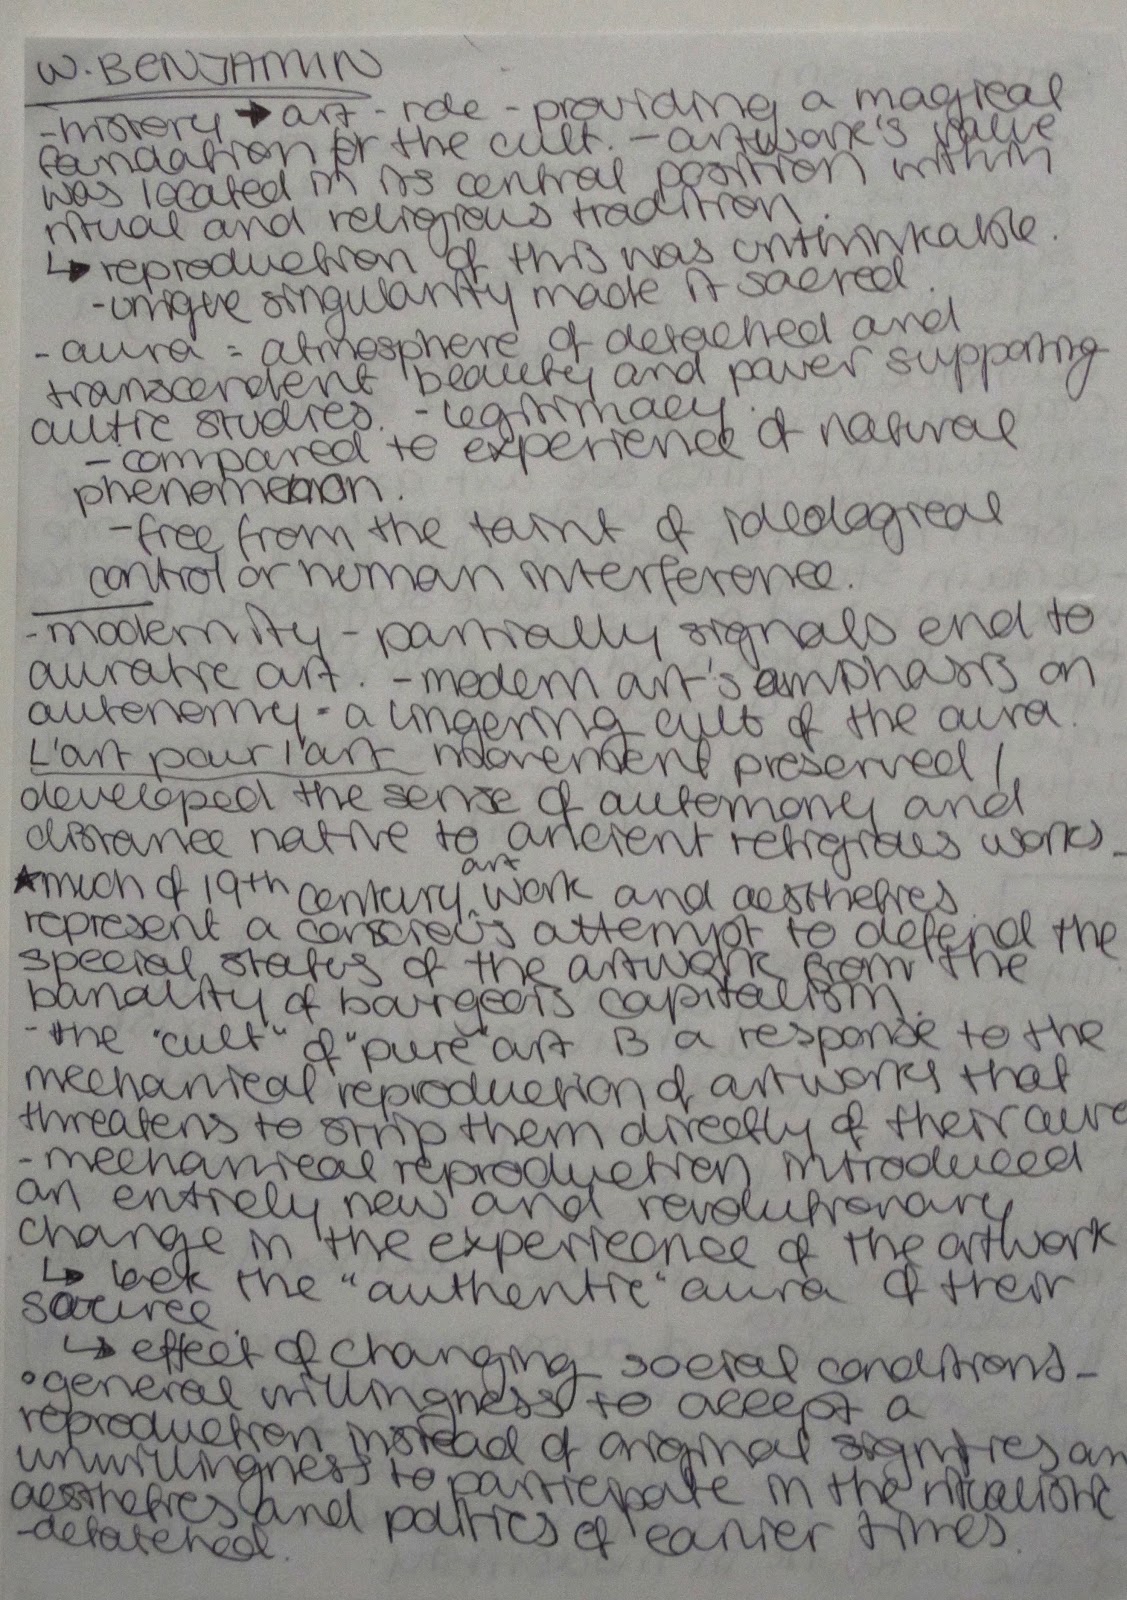 W. BENJAMIN
-history → art - role - providing a magical
foundation for the cult. - artwork's value
was located in its central position within
ritual and religious tradition.
↳ reproduction of this was unthinkable.
-unique singularity made it sacred.
- aura = atmosphere of detached and
transcendent beauty and power supporting
cultic studies. - legitimacy.
- compared to experience of natural
phenomenon.
-free from the taint of ideological
control or human interference.
-modernity - partially signals end to
auratic art. - modern art's emphasis on
autonomy = a lingering cult of the aura.
L'art pour l'art movement preserved /
developed the sense of automony and
distance native to ancient religious works -
★much of 19th century art work and aesthetics
represent a conscious attempt to defend the
special status of the artwork from the
banality of bourgeois capitalism.
- the "cult" of "pure" art is a response to the
mechanical reproduction of artworks that
threatens to strip them directly of their aura
- mechanical reproduction introduced
an entirely new and revolutionary
change in the experience of the artwork
↳ lack the "authentic" aura of their
source.
↳ effect of changing social conditions -
•general willingness to accept a
reproduction instead of original signifies an
unwillingness to participate in the ritualistic
aesthetics and politics of earlier times.
-detatched.